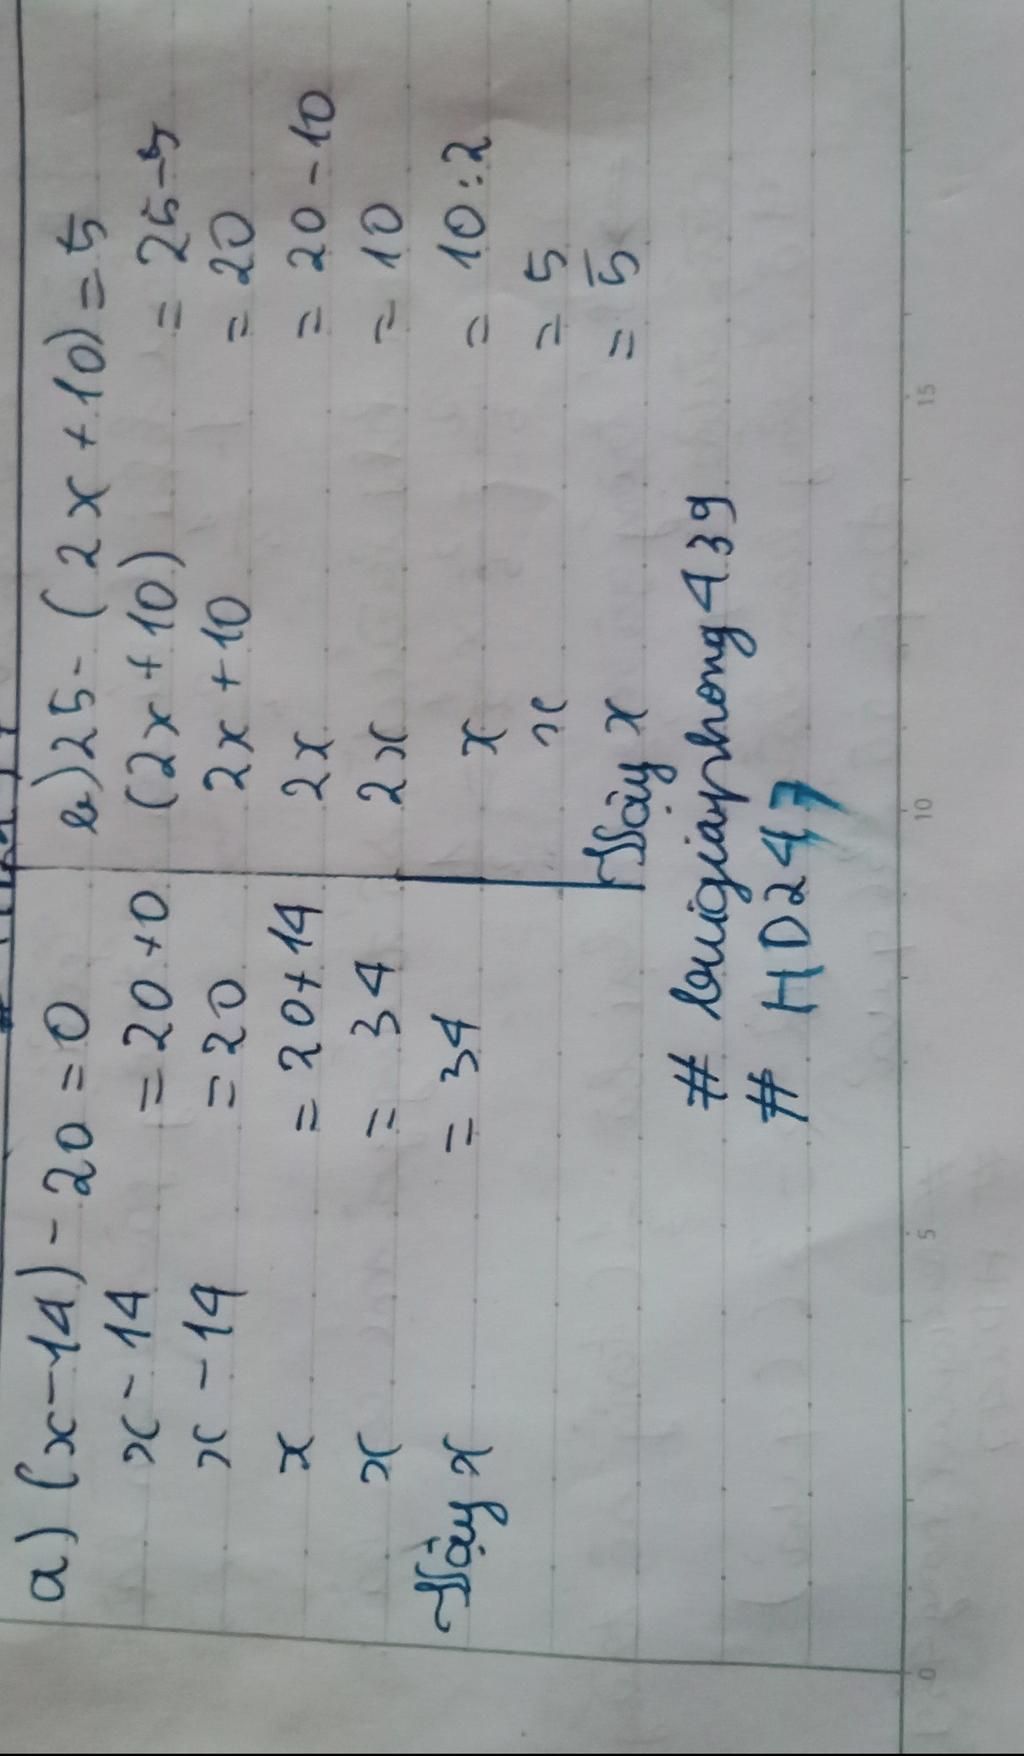 a) (x-14) - 20 = 0
x - 14 = 20 + 0
x - 14 = 20
x = 20 + 14
x = 34
Vậy x = 34
b) 25 - (2x + 10) = 5
(2x + 10) = 25 - 5
2x + 10 = 20
2x = 20 - 10
2x = 10
x = 10 : 2
x = 5
Vậy x = 5
# buigiaphong439
# HD247
0 5 10 15